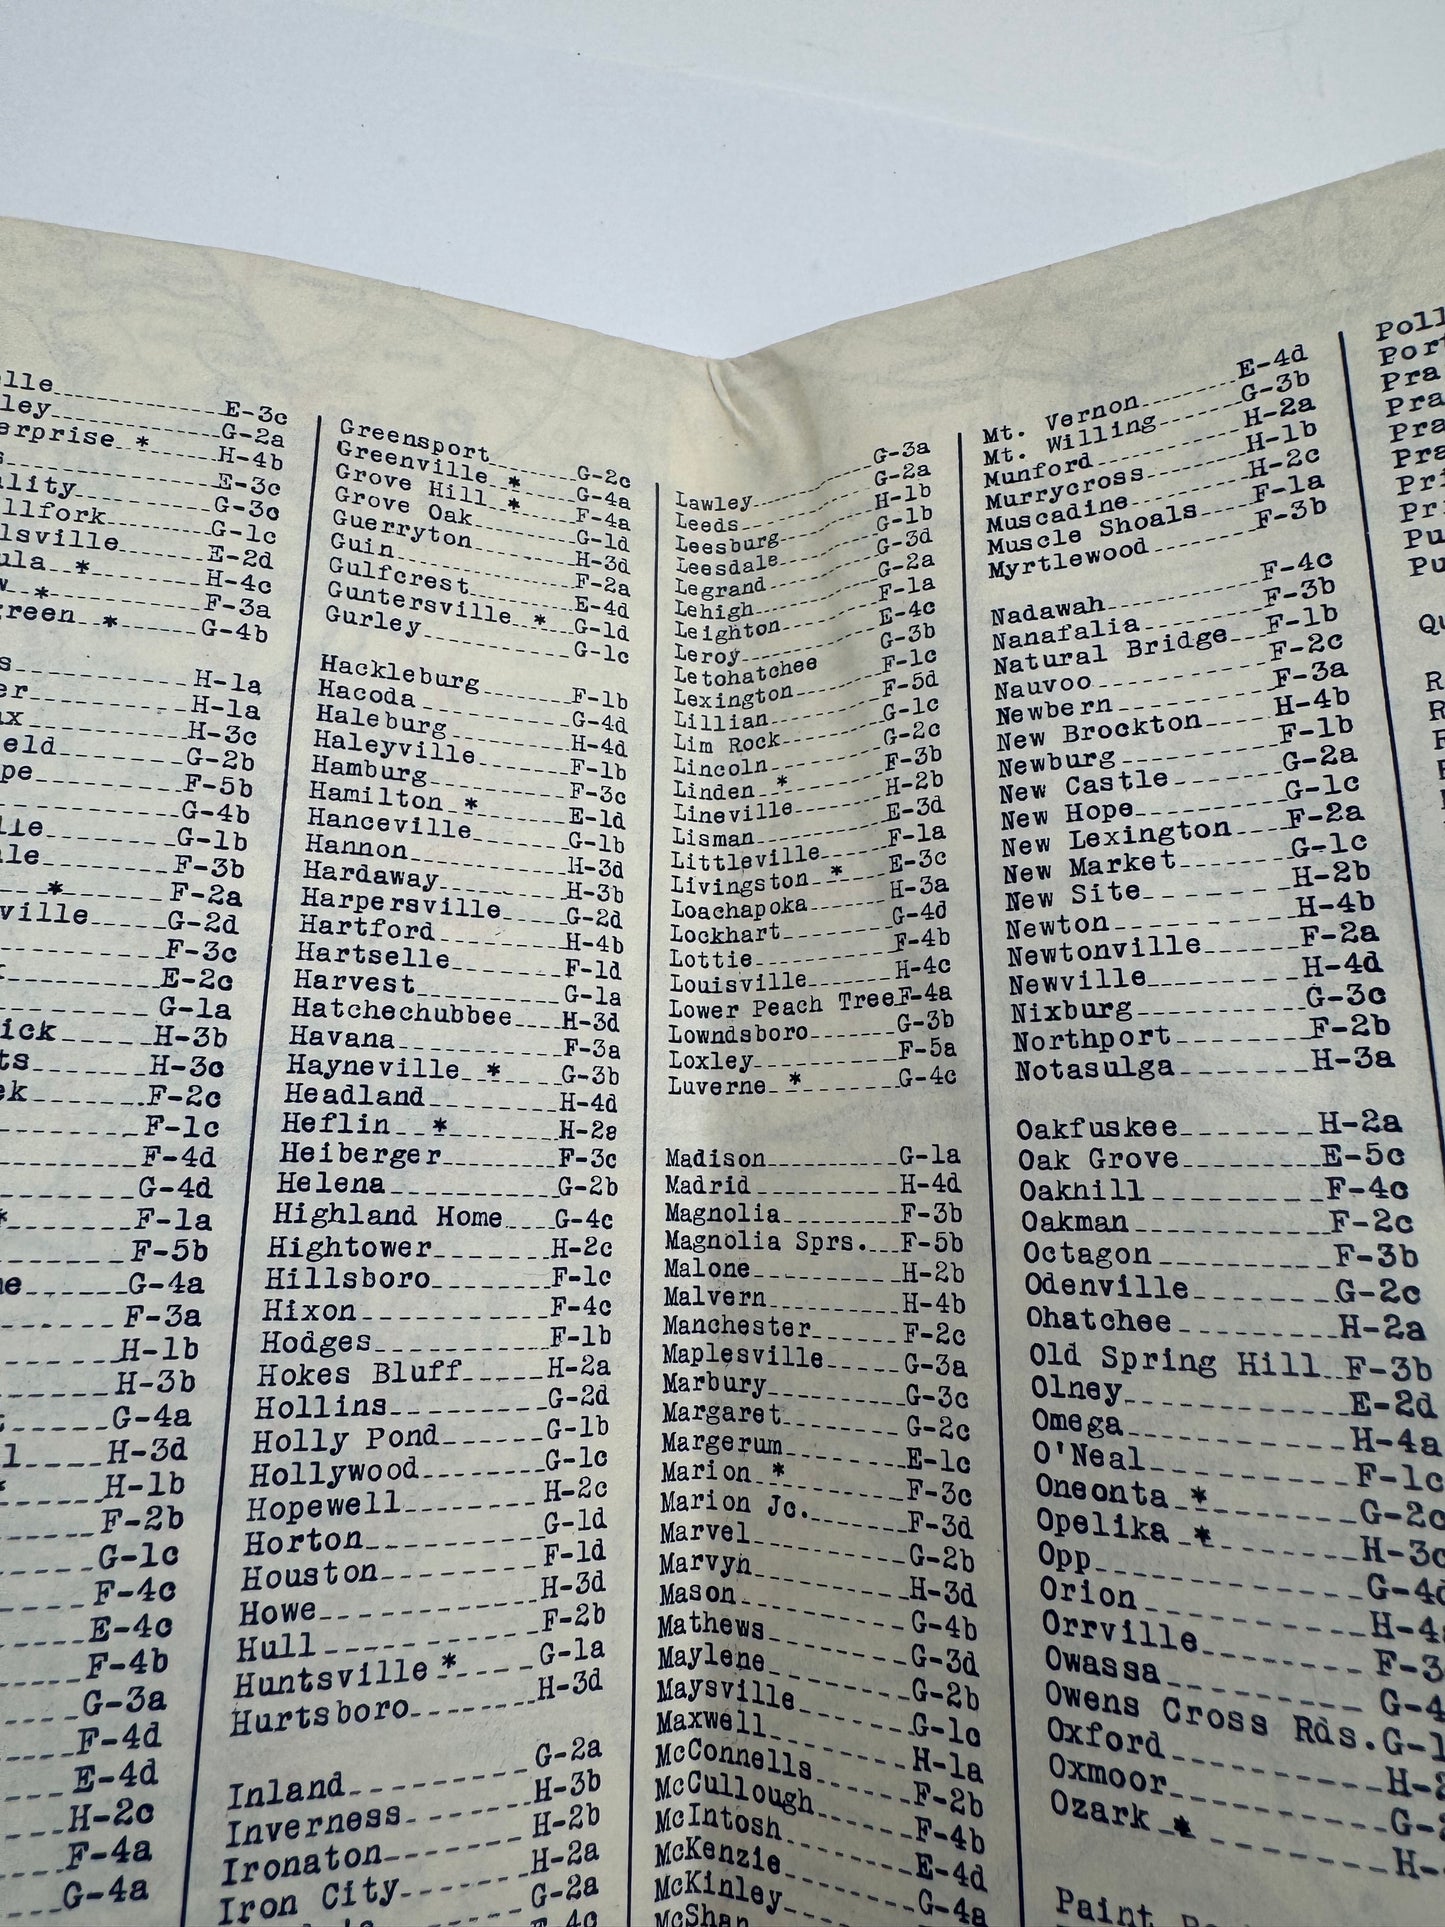 lle E-3c
ley G-2a
erprise * H-4b
s E-3c
lity G-3c
llfork G-1c
lsville E-2d
ula * H-4c
w * F-3a
green * G-4b
s H-1a
er H-1a
x H-3c
eld G-2b
pe F-5b
G-4b
lie G-1b
ale F-3b
* F-2a
ville G-2d
F-3c
E-2c
G-1a
ick H-3b
ts H-3c
ek F-2c
F-1c
F-4d
G-4d
* F-1a
F-5b
ne G-4a
F-3a
H-1b
H-3b
t G-4a
l H-3d
* H-1b
F-2b
G-1c
F-4c
E-4c
F-4b
G-3a
F-4d
E-4d
H-2c
F-4a
G-4a
Greensport G-2c
Greenville * G-4a
Grove Hill * F-4a
Grove Oak G-1d
Guerryton H-3d
Guin F-2a
Gulfcrest E-4d
Guntersville * G-1d
Gurley G-1c
Hackleburg F-1b
Hacoda G-4d
Haleburg H-4d
Haleyville F-1b
Hamburg F-3c
Hamilton * E-1d
Hanceville G-1b
Hannon H-3d
Hardaway H-3b
Harpersville G-2d
Hartford H-4b
Hartselle F-1d
Harvest G-1a
Hatchechubbee H-3d
Havana F-3a
Hayneville * G-3b
Headland H-4d
Heflin * H-2a
Heiberger F-3c
Helena G-2b
Highland Home G-4c
Hightower H-2c
Hillsboro F-1c
Hixon F-4c
Hodges F-1b
Hokes Bluff H-2a
Hollins G-2d
Holly Pond G-1b
Hollywood G-1c
Hopewell H-2c
Horton G-1d
Houston F-1d
Howe H-3d
Hull F-2b
Huntsville * G-1a
Hurtsboro H-3d
Inland G-2a
Inverness H-3b
Ironaton H-2b
Iron City H-2a
G-2a
Lawley G-3a
Leeds G-2a
Leesburg H-1b
Leesdale G-1b
Legrand G-3d
Lehigh G-2a
Leighton F-1a
Leroy E-4c
Letohatchee G-3b
Lexington F-1c
Lillian F-5d
Lim Rock G-1c
Lincoln G-2c
Linden * F-3b
Lineville H-2b
Lisman E-3d
Littleville F-1a
Livingston * E-3c
Loachapoka H-3a
Lockhart G-4d
Lottie F-4b
Louisville H-4c
Lower Peach Tree F-4a
Lowndsboro G-3b
Loxley F-5a
Luverne * G-4c
Madison G-1a
Madrid H-4d
Magnolia F-3b
Magnolia Sprs. F-5b
Malone H-2b
Malvern H-4b
Manchester F-2c
Maplesville G-3a
Marbury G-3c
Margaret G-2c
Margerum E-1c
Marion * F-3c
Marion Jc. F-3d
Marvel G-2b
Marvyn H-3d
Mason G-4b
Mathews G-3d
Maylene G-2b
Maysville G-1c
Maxwell H-1a
McConnells F-2b
McCullough F-4b
McIntosh E-4d
McKenzie G-4a
McKinley
McShan
Mt. Vernon E-4d
Mt. Willing G-3b
Munford H-2a
Murrycross H-1b
Muscadine H-2c
Muscle Shoals F-1a
Myrtlewood F-3b
Nadawah F-4c
Nanafalia F-3b
Natural Bridge F-1b
Nauvoo F-2c
Newbern F-3a
New Brockton H-4b
Newburg F-1b
New Castle G-2a
New Hope G-1c
New Lexington F-2a
New Market G-1c
New Site H-2b
Newton H-4b
Newtonville F-2a
Newville H-4d
Nixburg G-3c
Northport F-2b
Notasulga H-3a
Oakfuskee H-2a
Oak Grove E-5c
Oakhill F-4c
Oakman F-2c
Octagon F-3b
Odenville G-2c
Ohatchee H-2a
Old Spring Hill F-3b
Olney E-2d
Omega H-4a
O'Neal F-1c
Oneonta * G-2c
Opelika * H-3c
Opp G-4d
Orion H-4
Orrville F-3
Owassa G-4
Owens Cross Rds. G-1
Oxford H-2
Oxmoor G-2
Ozark * H-
Paint
Poll
Port
Pra
Pra
Pra
Pra
Pri
Pri
Pu
Pu
Qu
R
R